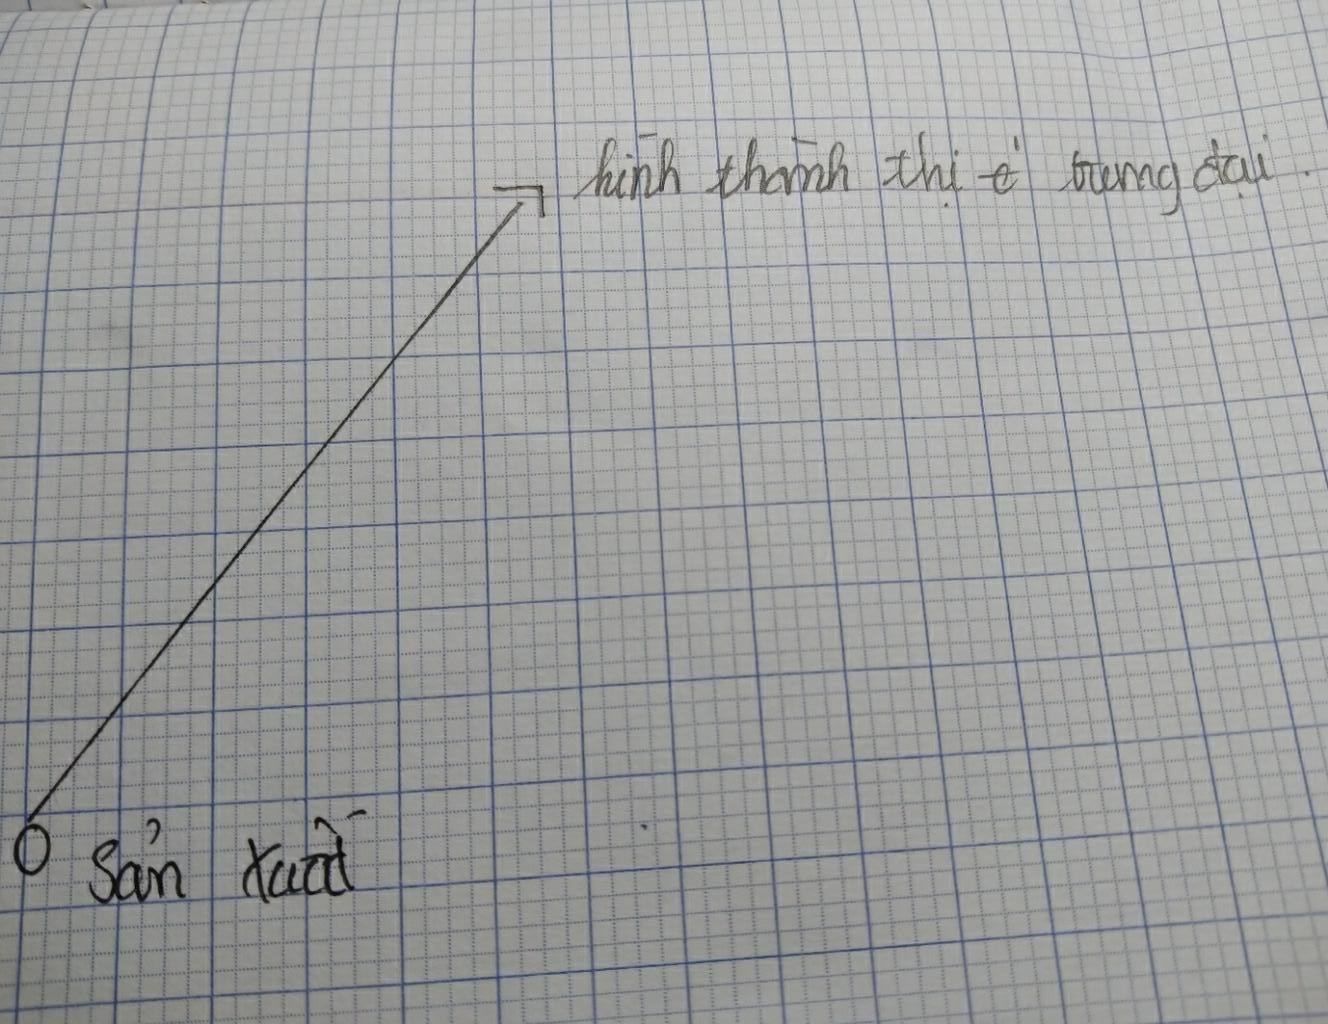 hình thành thị ở trung đại.
O Sản xuất